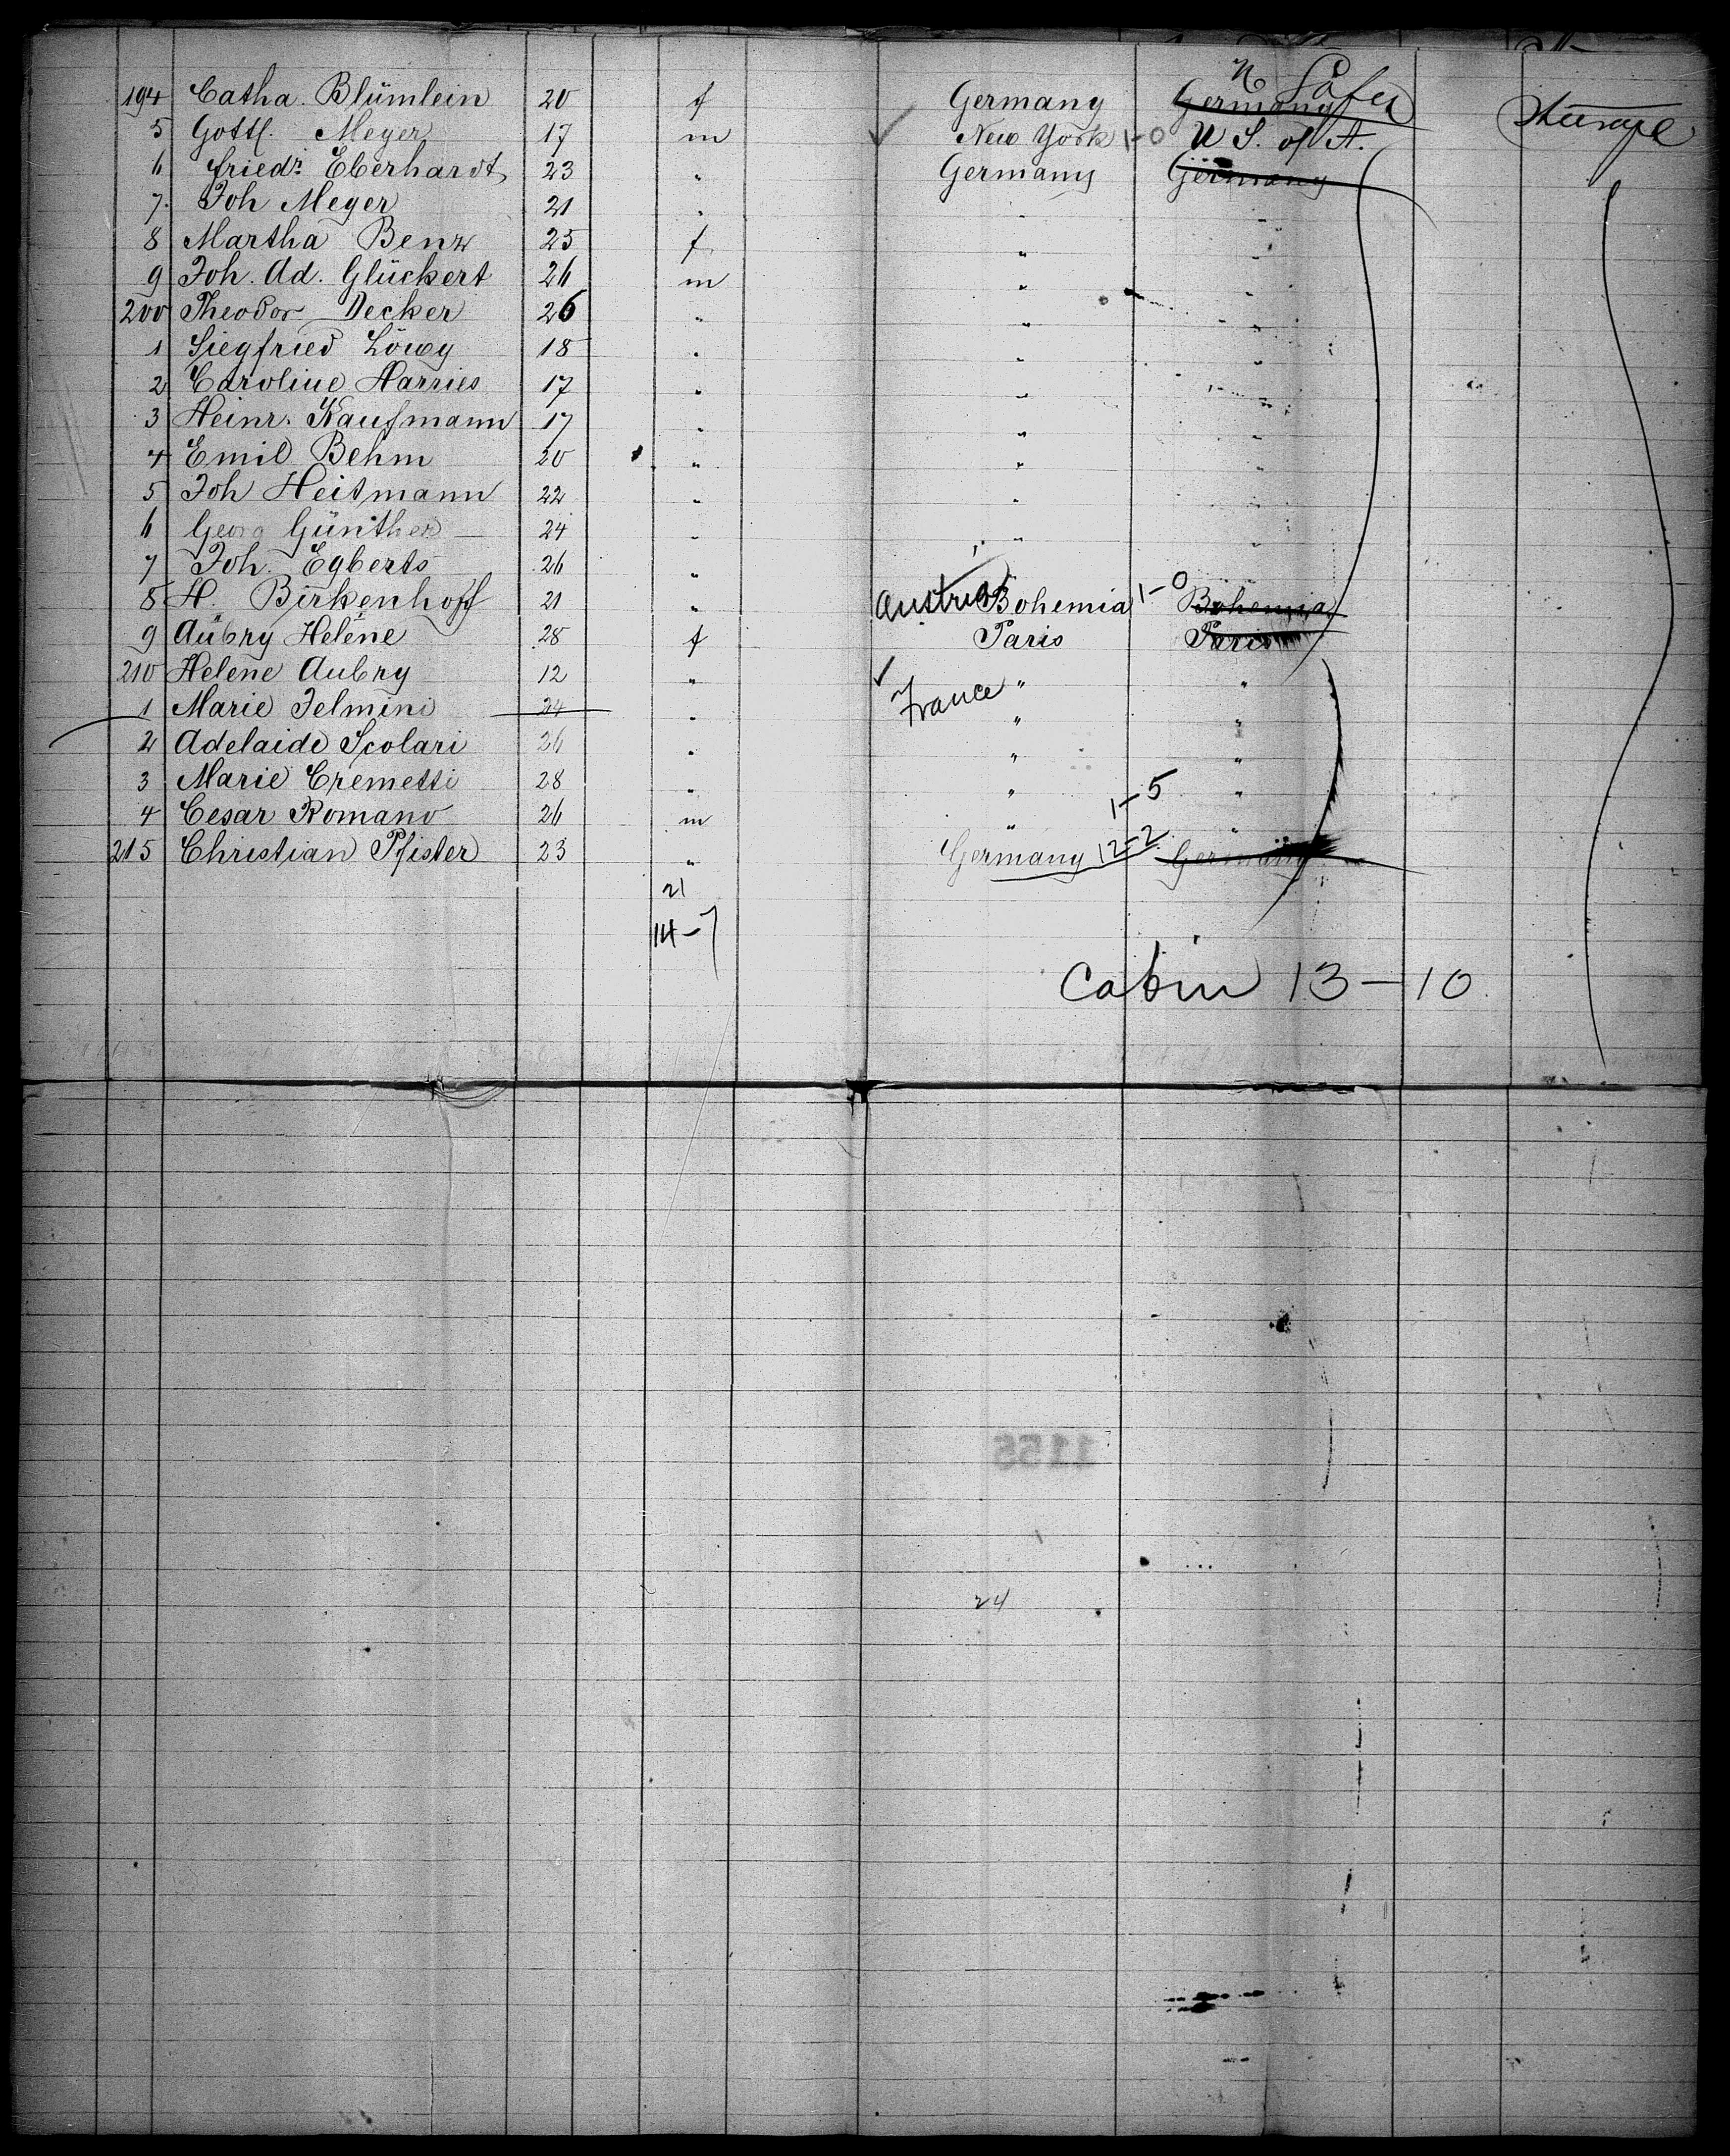 194 Catha. Blümlein 20 f Germany Germany
5 Gottl. Meyer 17 m New York 1-0 U S. of A.
6 Friedr. Eberhardt 23 " Germany Germany
7. Joh Meyer 21 " " "
8 Martha Benz 25 f " "
9 Joh. Ad. Glückert 26 m " "
200 Theodor Decker 26 " " "
1 Siegfried Löwy 18 " " "
2 Caroline Harries 17 " " "
3 Heinr. Kaufmann 17 " " "
4 Emil Behm 20 " " "
5 Joh Heitmann 22 " " "
6 Georg Günther 24 " " "
7 Joh. Egberts 26 "
8 H. Birkenhoff 21 " Austria Bohemia 1-0 Bohemia
9 Aübry Helène 28 f Paris Paris
210 Helene Aubry 12 " France " "
1 Marie Jelmini 24 " " "
2 Adelaide Scolari 26 " " "
3 Marie Cremetti 28 " " "
4 Cesar Romano 26 m " 1-5 "
215 Christian Pfister 23 " Germany 12-2 Germany
21
14-7
Cabin 13-10
1155
24